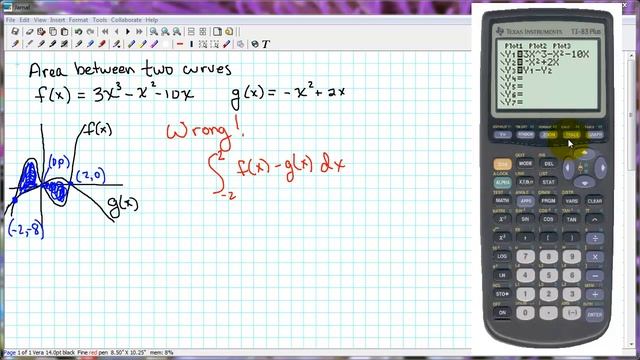 Jarnal
File Edit View Insert Format Tools Collaborate Help
Area between two curves
f(x) = 3x³ - x² - 10x    g(x) = -x² + 2x
Wrong!
∫₋₂² f(x) - g(x) dx
f(x)
(0,0)
(2,0)
g(x)
(-2,-8)
Page 1 of 1 Vera 14.0pt black Fine red pen 8.50" X 10.25" mem: 8%
TEXAS INSTRUMENTS TI-83 Plus
Plot1 Plot2 Plot3
\Y1=3X^3-X²-10X
\Y2=-X²+2X
\Y3=Y1-Y2
\Y4=
\Y5=
\Y6=
\Y7=
Y= WINDOW ZOOM TRACE GRAPH
2nd MODE DEL
A-LOCK
ALPHA X,T,θ,n STAT
MATH APPS PRGM VARS CLEAR
x⁻¹ SIN COS TAN ^
x² , ( ) ÷
LOG 7 8 9 ×
LN 4 5 6 −
STO▸ 1 2 3 +
ON 0 . (-) ENTER